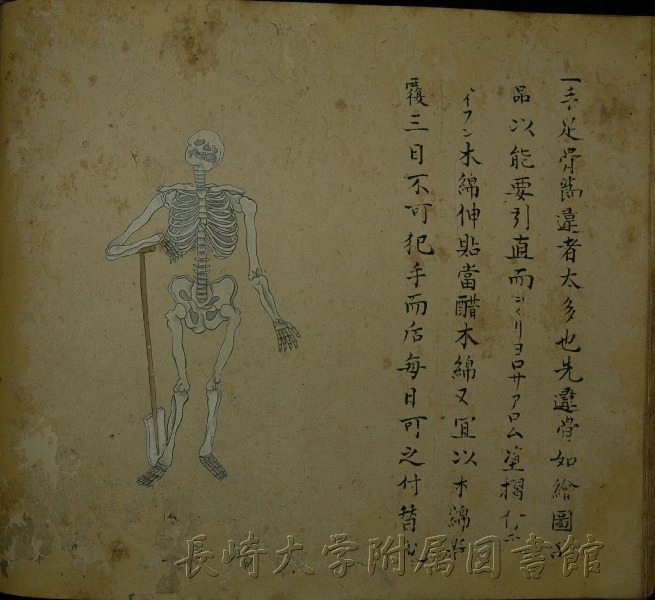 一手足骨違者太多也先違骨如繪圖
品以能要引直而リヨロサアロム塗摺
イフン木綿伸貼當醋木綿又宜以木綿
覆三日不可犯手而后每日可之付替
長崎大学附属図書館